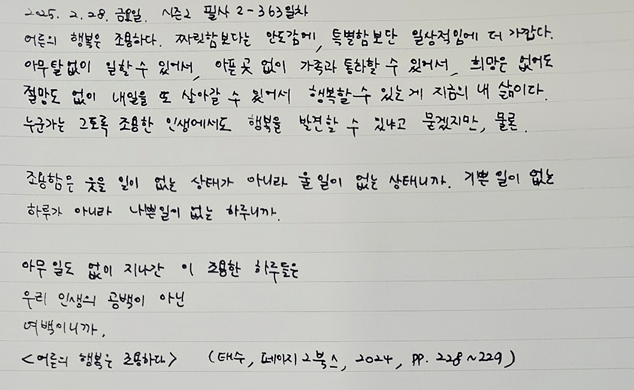 2025. 2. 28. 금요일. 시즌2 필사 2-363일차
어른의 행복은 조용하다. 짜릿함보다는 안도감에, 특별함보단 일상적임에 더 가깝다.
아무탈없이 일할 수 있어서, 아픈 곳 없이 가족과 통화할 수 있어서, 희망은 없어도
절망도 없이 내일을 또 살아갈 수 있어서 행복할 수 있는 게 지금의 내 삶이다.
누군가는 그토록 조용한 인생에서도 행복을 발견할 수 있냐고 묻겠지만, 물론.
조용함은 웃을 일이 없는 상태가 아니라 울 일이 없는 상태니까. 기쁜 일이 없는
하루가 아니라 나쁜일이 없는 하루니까.
아무 일도 없이 지나간 이 조용한 하루들은
우리 인생의 공백이 아닌
여백이니까.
<어른의 행복은 조용하다> (태수, 페이지2북스, 2024, pp. 228~229)